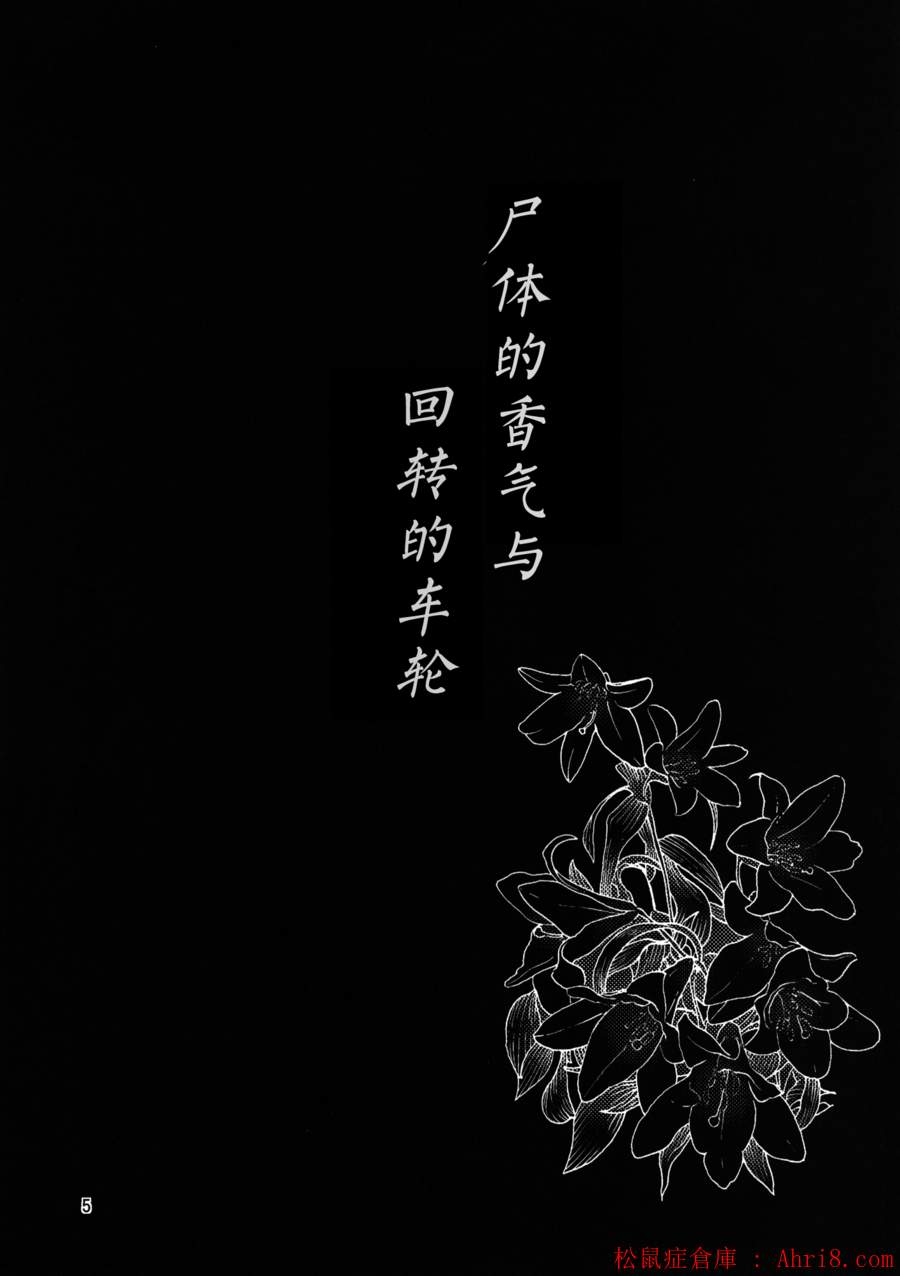 尸体的香气与
回转的车轮
5
松鼠症倉庫 : Ahri8.com